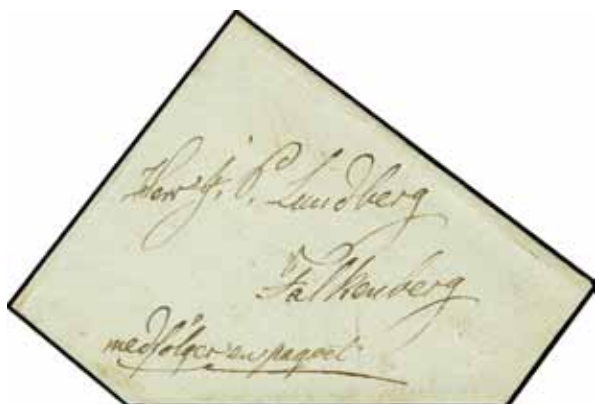 Herr J. P. Lundberg
Falkenberg
medfölger en paquet